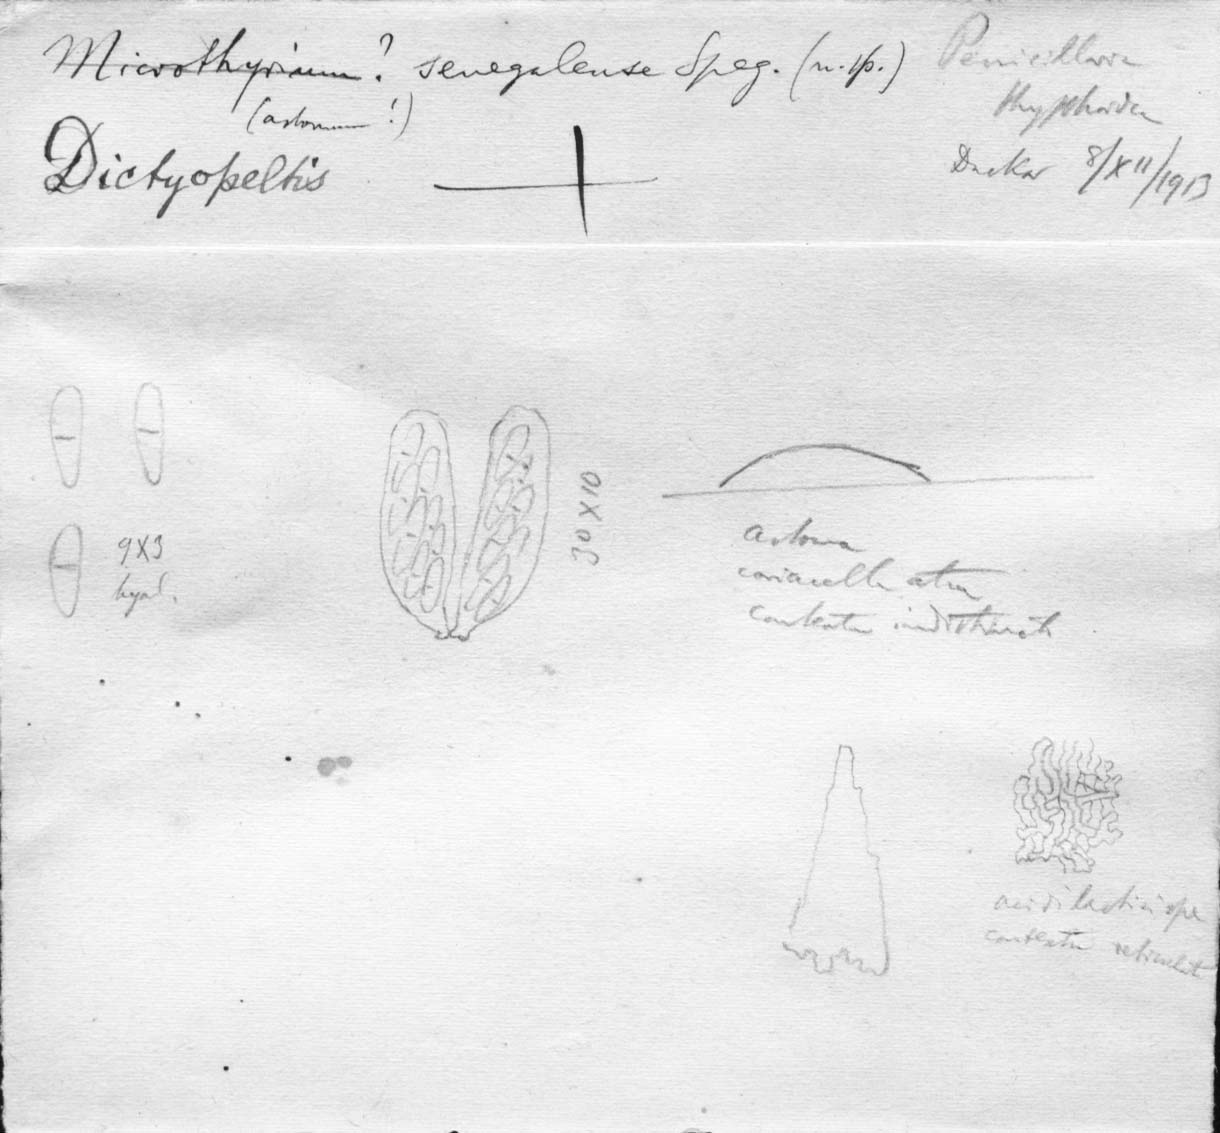 Microthyrium? senegalense Speg. (n. sp.)
(astomum!)
Dictyopeltis
Penicillaria
thyphoidea
Dackar 8/XII/1913
9X3
hyal.
30X10
astoma
coriacella atra
contextu indistincto
contextu reticulat